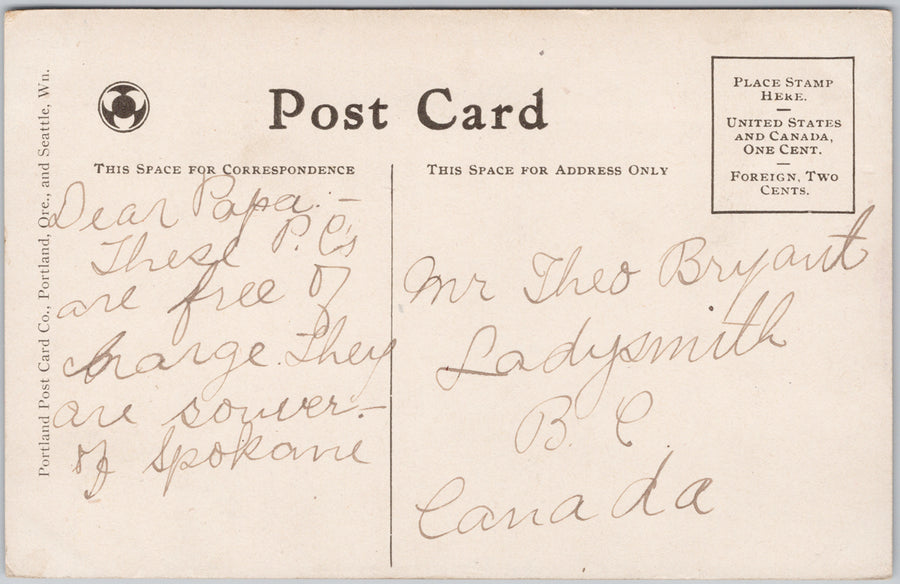 Portland Post Card Co., Portland, Ore., and Seattle, Wn.
Post Card
THIS SPACE FOR CORRESPONDENCE
THIS SPACE FOR ADDRESS ONLY
PLACE STAMP
HERE.
UNITED STATES
AND CANADA,
ONE CENT.
FOREIGN, TWO
CENTS.
Dear Papa. –
These P. C's
are free of
charge. They
are souver. –
of Spokane
Mr Theo Bryant
Ladysmith
B. C.
Canada